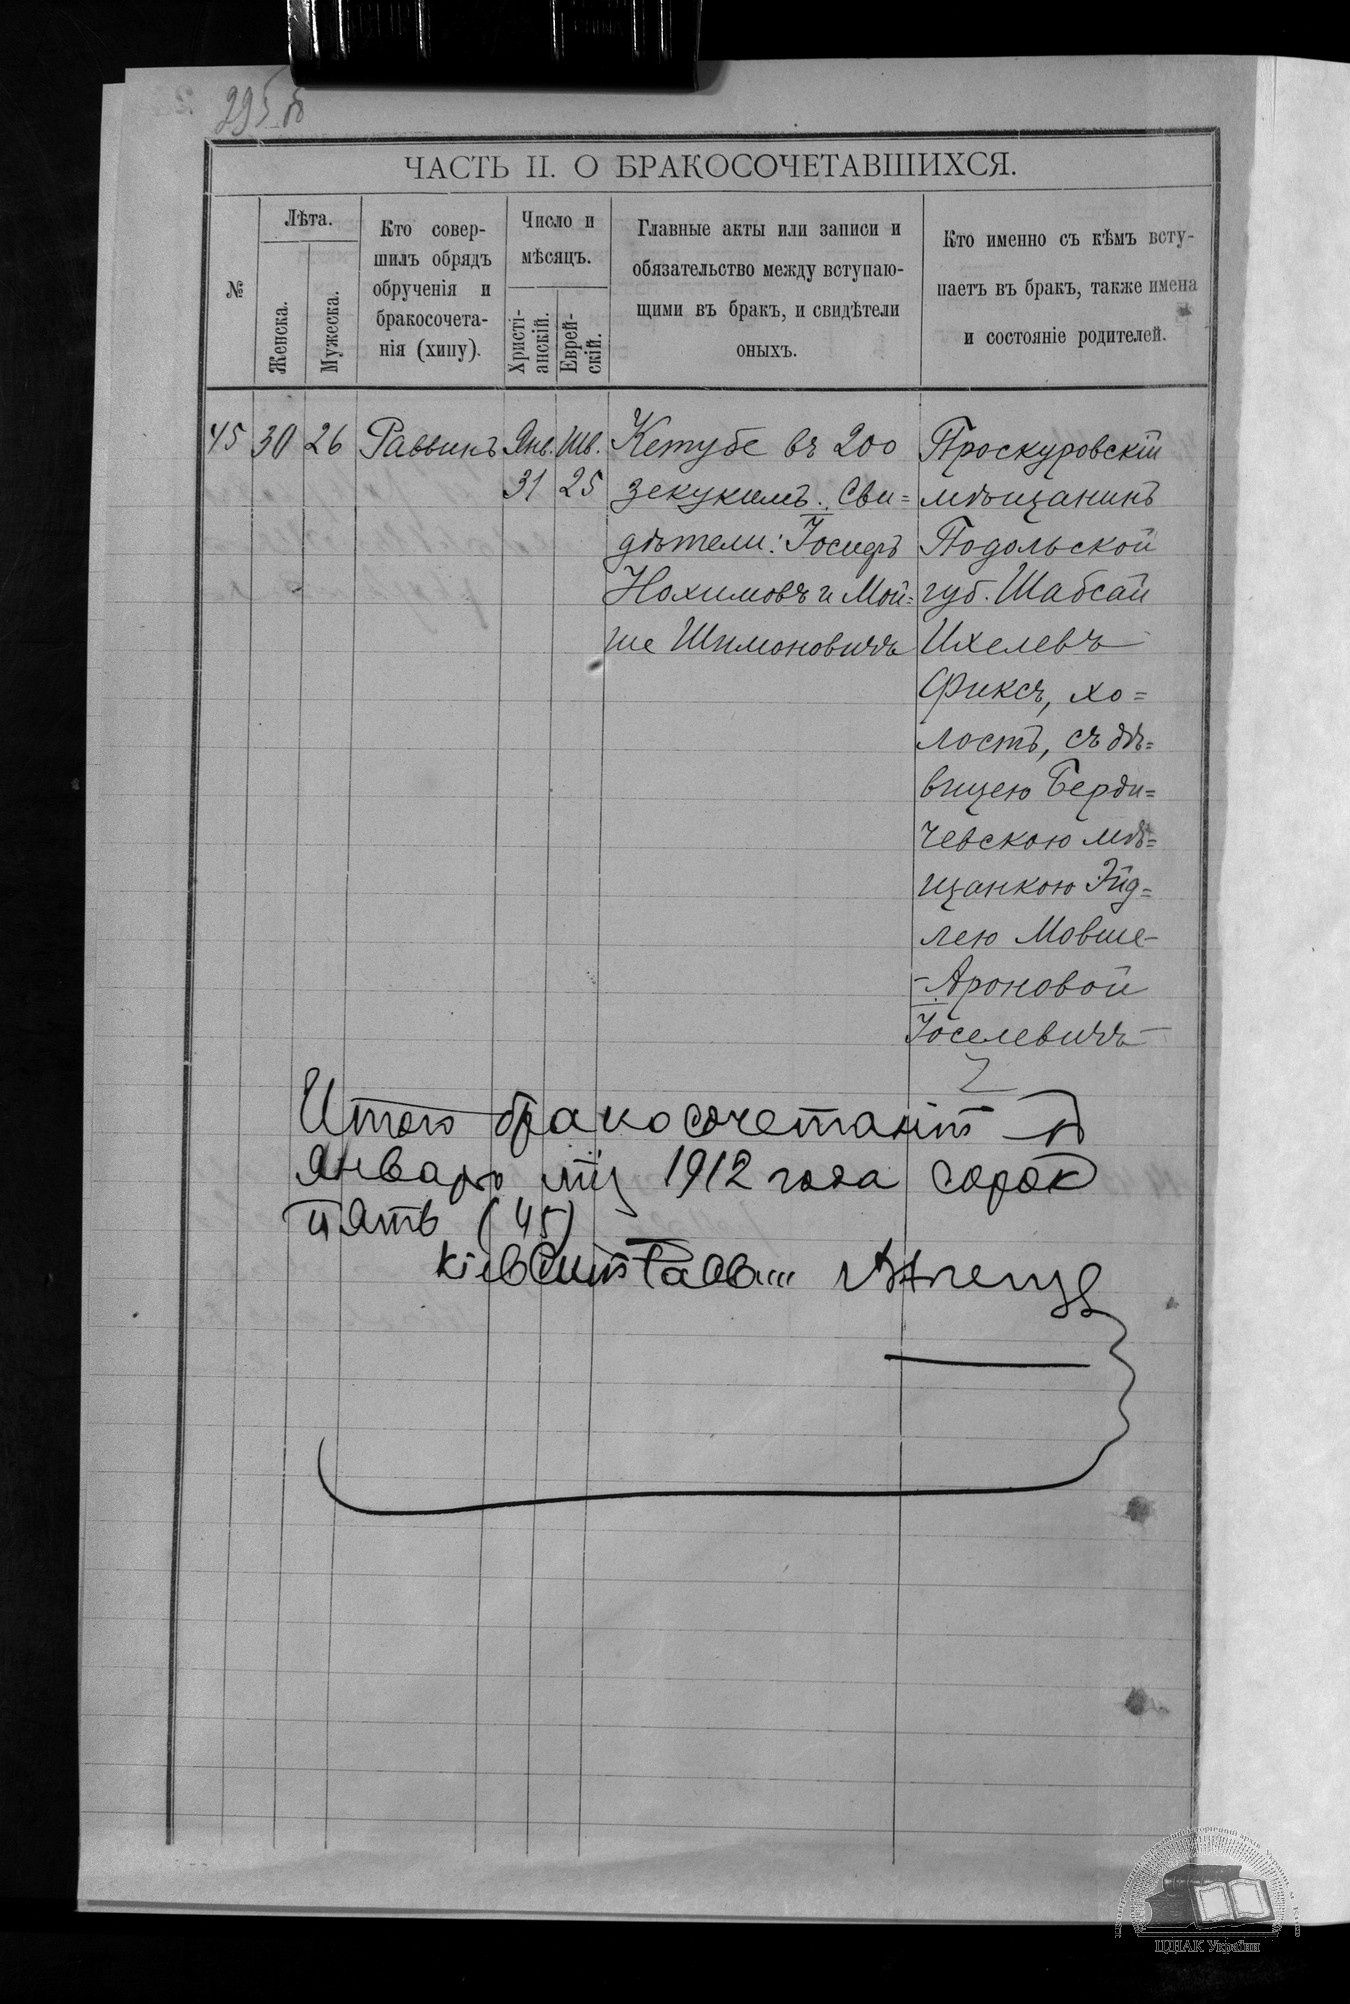 295 об
ЧАСТЬ II. О БРАКОСОЧЕТАВШИХСЯ.
№
Лѣта.
Женска.
Мужеска.
Кто совер-
шилъ обрядъ
обрученія и
бракосочета-
нія (хипу).
Число и
мѣсяцъ.
Христі-
анскій.
Еврей-
скій.
Главные акты или записи и
обязательство между вступаю-
щими въ бракъ, и свидѣтели
оныхъ.
Кто именно съ кѣмъ всту-
паетъ въ бракъ, также имена
и состояніе родителей.
45
30
26
Раввинъ
Янв.
31
Шв.
25
Кетубе въ 200
зекукимъ. Сви=
дѣтели: Іосифъ
Нохимовъ и Мой=
ше Шимоновичъ
Проскуровскій
мѣщанинъ
Подольской
губ. Шабсай
Ихелевъ
Фиксъ, хо=
лостъ, съ дѣ=
вицею Берди=
чевскою мѣ=
щанкою Эйд=
лею Мовше-
-Ароновой
Іоселевичъ
Итого бракосочетаній въ
январѣ мц 1912 года сорок
пять (45)
Кіевскій Равв...
ЦДІАК України